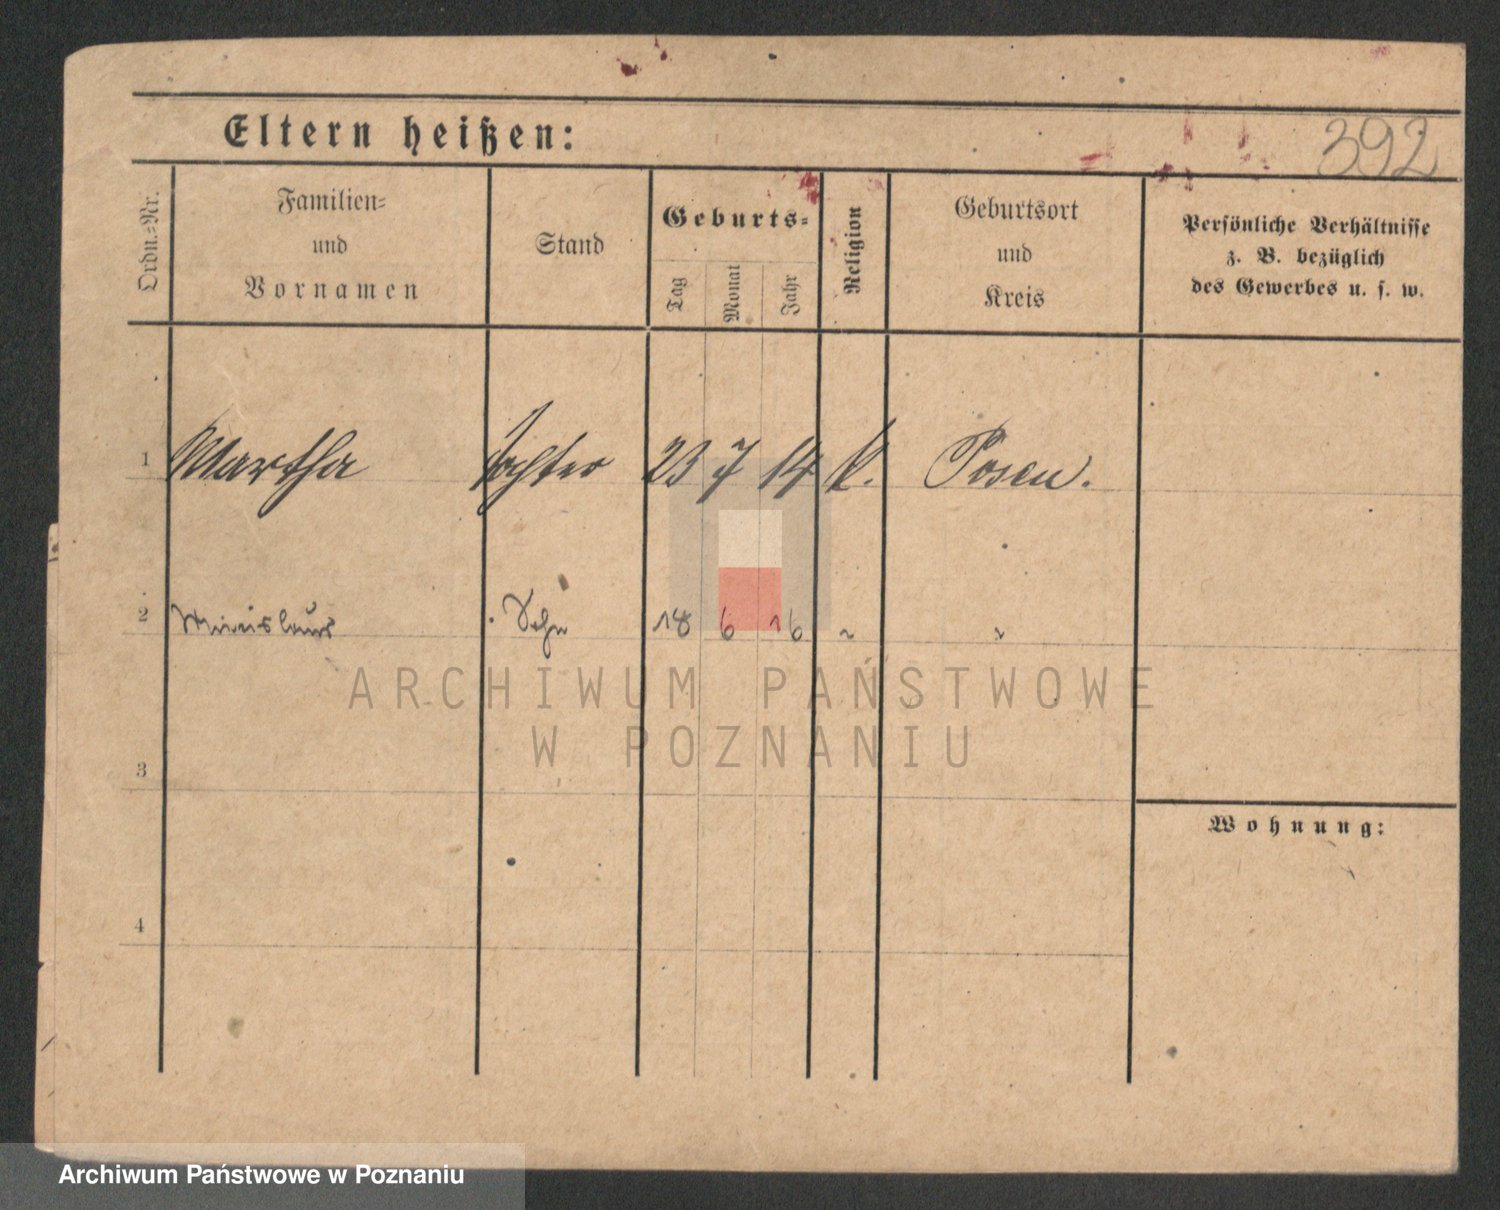 Eltern heißen:
392
Ordn.-Nr.
Familien-
und
Vornamen
Stand
Geburts-
Tag
Monat
Jahr
Religion
Geburtsort
und
Kreis
Persönliche Verhältnisse
z. B. bezüglich
des Gewerbes u. s. w.
1 Martha Tochter 23 7 14 k. Posen.
2 Sohn 18 6 16 " "
ARCHIWUM PAŃSTWOWE
W POZNANIU
3
Wohnung:
4
Archiwum Państwowe w Poznaniu